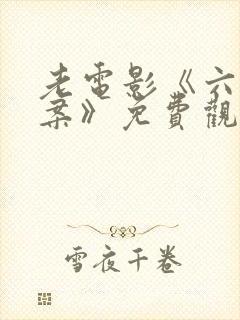 老電影《六
案》免費觀
雪夜千卷